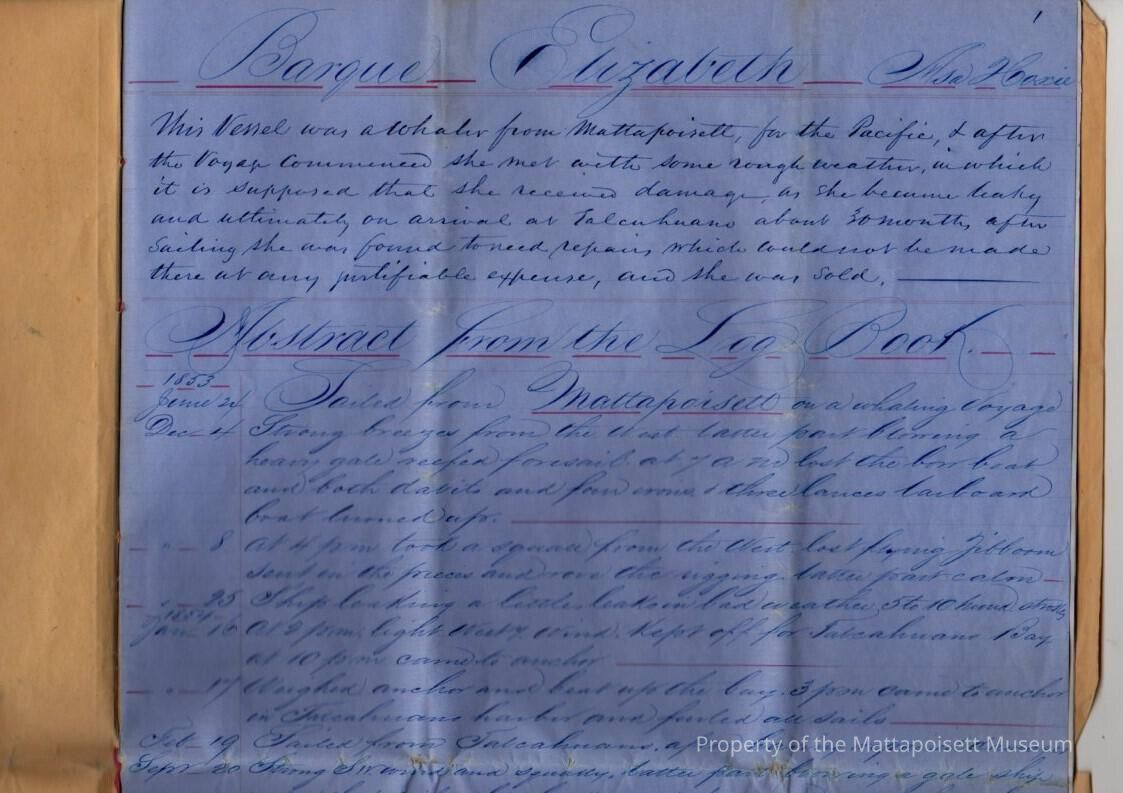 1
Barque Elizabeth Asa Hoxie
This Vessel was a whaler from Mattapoisett, for the Pacific, & after
the Voyage Commenced she met with some rough weather, in which
it is supposed that she received damage, as she became leaky
and ultimately on arrival at Talcahuano about 30 months after
Sailing she was found to need repairs which could not be made
there at any justifiable expense, and she was Sold.
Abstract from the Log Book.
1853
June 24 Sailed from Mattapoisett on a whaling Voyage
Dec 4 Strong breezes from the West latter part blowing a
heavy gale reefed foresail at 7 a m lost the bow boat
and both davits and four irons & three lances larboard
boat turned up.
" " 8 at 4 p m took a squall from the West lost flying Jibboom
sent in the pieces and rove the rigging latter part calm
" " 25 Ship leaking a little, leaks in bad weather 5 to 10 hund strokes
1854
Jany 16 At 2 p m, light West wind Kept off for Talcahuano Bay
at 10 p m came to anchor
" " 17 Weighed anchor and beat up the bay. 3 p m came to anchor
in Talcahuano harbor and furled all sails
Feb 19 Sailed from Talcahuano,
Sept 20 Strong S W wind and squally, latter part blowing a gale ship
Property of the Mattapoisett Museum